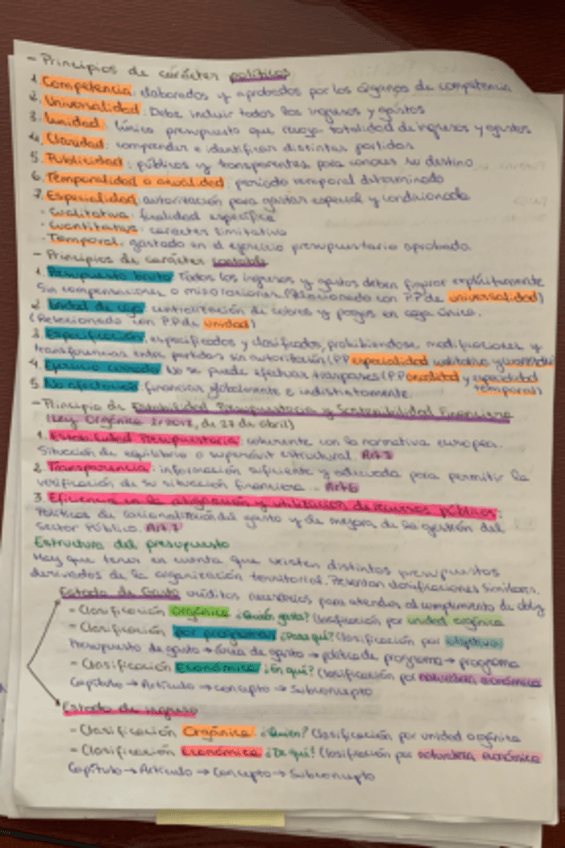 - Principios de carácter políticos
1. Competencia: elaborados y aprobados por los órganos de competencia
2. Universalidad: Debe incluir todos los ingresos y gastos
3. Unidad: único presupuesto que recoja totalidad de ingresos y gastos
4. Claridad: comprender e identificar distintas partidas
5. Publicidad: públicos y transparentes para conocer su destino
6. Temporalidad o anualidad: periodo temporal determinado
7. Especialidad: autorización para gastar especial y condicionada
- Cualitativa: finalidad específica
- Cuantitativa: carácter limitativo
- Temporal: gastado en el ejercicio presupuestario aprobado
- Principios de carácter contable
1. Presupuesto bruto: Todos los ingresos y gastos deben figurar explícitamente
sin compensaciones o minoraciones. (Relacionado con PP de universalidad)
2. Unidad de caja: centralización de cobros y pagos en caja única.
(Relacionado con P.P de unidad)
3. Especificación: especificados y clasificados, prohibiéndose modificaciones y
transferencias entre partidas sin autorización (PP especialidad cualitativa y cuantitativa
4. Ejercicio cerrado: No se puede efectuar traspasos (P.P anualidad y especialidad
temporal)
5. No afectación: financiar globalmente e indistintamente.
- Principio de Estabilidad Presupuestaria y Sostenibilidad Financiera
(Ley Orgánica 2/2012, de 27 de abril)
1. Estabilidad Presupuestaria: coherente con la normativa europea.
Situación de equilibrio o superávit estructural. Art 3
2. Transparencia: información suficiente y adecuada para permitir la
verificación de su situación financiera. Art 6
3. Eficiencia en la asignación y utilización de recursos públicos:
Políticas de racionalización del gasto y de mejora de la gestión del
sector Público. Art 7
Estructura del presupuesto
Hay que tener en cuenta que existen distintos presupuestos
derivados de la organización territorial. Presentan clasificaciones similares.
Estado de Gasto: créditos necesarios para atender al cumplimento de oblig
- Clasificación orgánica ¿Quién gasta? Clasificación por unidad orgánica
- Clasificación por programas ¿Para qué? Clasificación por objetivos
Presupuesto de gasto → área de gasto → política de programa → programa
- Clasificación Económica ¿En qué? Clasificación por naturaleza económica
Capítulo → Artículo → concepto → Subconcepto
Estado de ingreso
- Clasificación Orgánica ¿Quién? Clasificación por unidad orgánica
- Clasificación Económica ¿De qué? Clasificación por naturaleza económica
Capítulo → Artículo → Concepto → Subconcepto